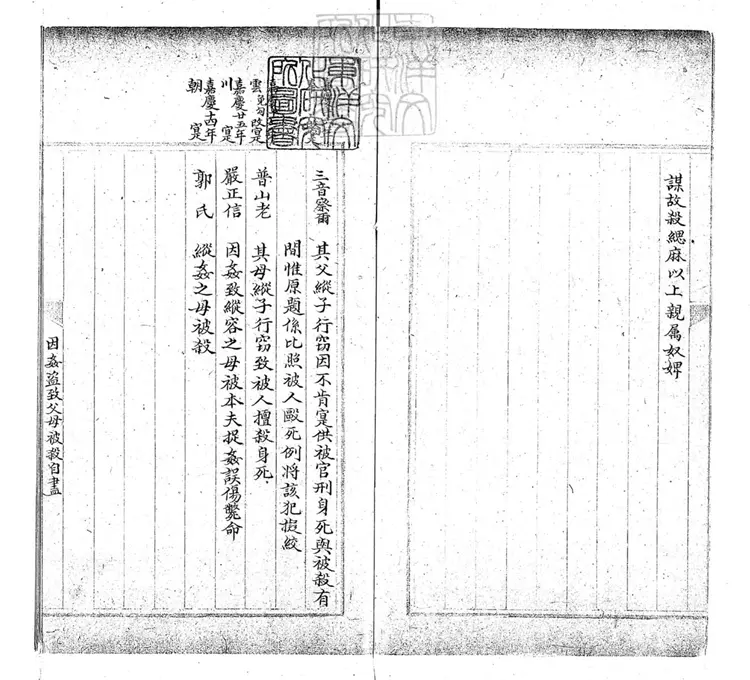 謀故殺緦麻以上親属奴婢
東洋文
化研究
所圖書
雲
嘉慶廿五年
川 寔
嘉慶十四年
朝 寔
三音察爾 其父縱子行窃因不肯寔供被官刑身死與被殺有
間惟原題係比照被人毆死例將該犯擬絞
普山老 其母縱子行窃致被人擅殺身死
嚴正信 因姦致縱容之母被本夫捉姦誤傷斃命
郭氏 縱姦之母被殺
因姦盜致父母被殺自盡